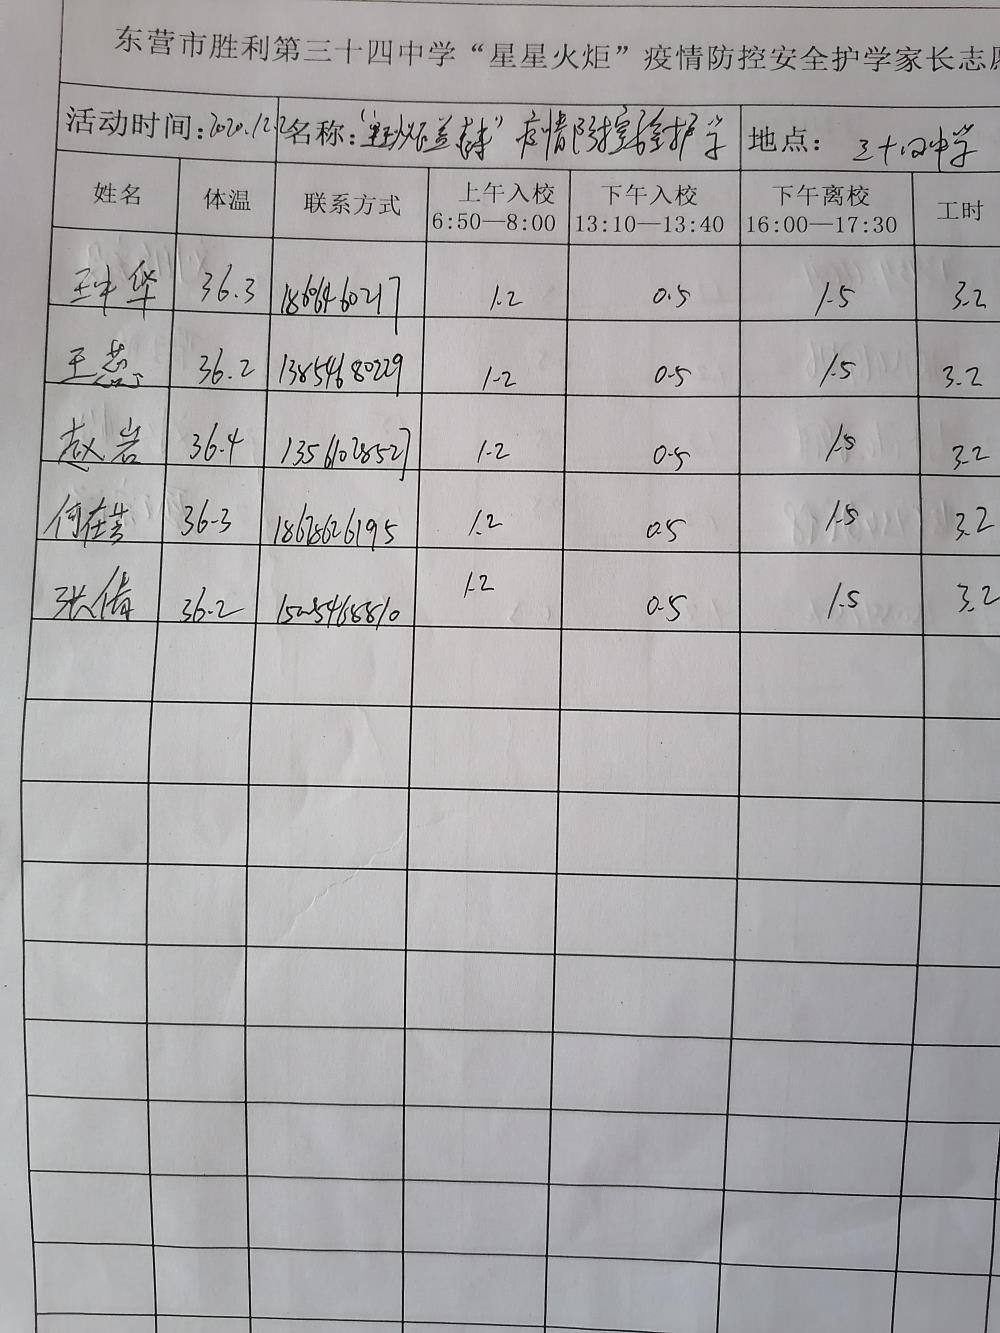 东营市胜利第三十四中学“星星火炬”疫情防控安全护学家长志愿
活动时间：2020.12.2 名称： 疫情防控安全护学 地点： 三十四中学
姓名 体温 联系方式 上午入校 6:50—8:00 下午入校 13:10—13:40 下午离校 16:00—17:30 工时
王中华 36.3 18606460217 1.2 0.5 1.5 3.2
王蕊 36.2 13854680229 1.2 0.5 1.5 3.2
赵岩 36.4 13561028527 1.2 0.5 1.5 3.2
何在芸 36.3 18678626195 1.2 0.5 1.5 3.2
张倩 36.2 1.2 0.5 1.5 3.2